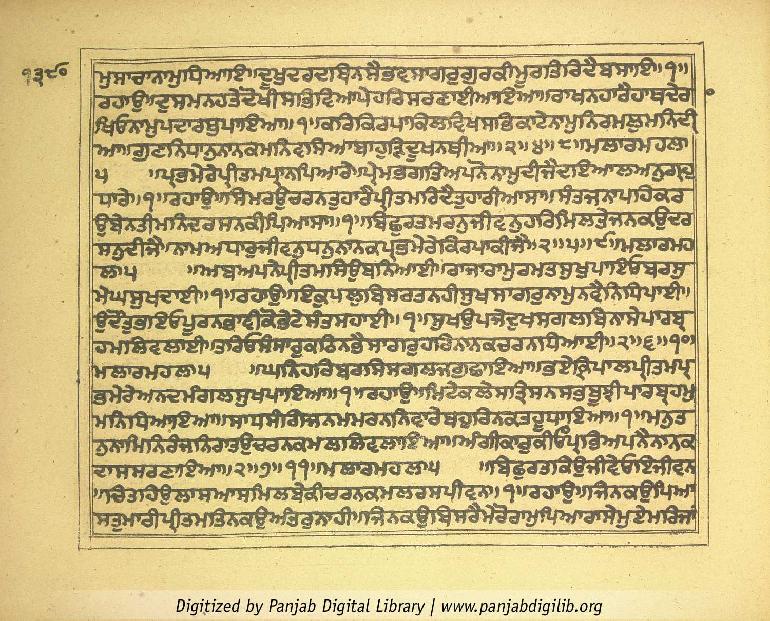 ੧੩੮੦
ਮੁਸਾਚਾਨਾਮੁਧਿਆਇ॥ਦੂਖੁਦਰਦਾਬਿਨਸੈਭਵਸਾਗਰੁਗੁਰਕੀਮੂਰਤਿਰਿਦੈਬਸਾਇ॥੧॥
ਰਹਾਉ॥ਦੁਸਮਨਹਤੇਦੋਖੀਸਭਿਵਿਆਪੇਹਰਿਸਰਣਾਈਆਇਆ॥ਰਾਖਨਹਾਰੈਹਾਥਦੇਰਾ
ਖਿਓਨਾਮੁਪਦਾਰਥੁਪਾਇਆ॥੧॥ਕਰਿਕਿਰਪਾਕਿਲਵਿਖਸਭਿਕਾਟੇਨਾਮੁਨਿਰਮਲੁਮਨਿਦੀ
ਆ॥ਗੁਣਨਿਧਾਨੁਨਾਨਕਮਨਿਵਸਿਆਬਾਹੁੜਿਦੂਖਨਥੀਆ॥੨॥੪॥੮॥ਮਲਾਰਮਹਲਾ
੫ ॥ਪ੍ਰਭਮੇਰੇਪ੍ਰੀਤਮਪ੍ਰਾਨਪਿਆਰੇ॥ਪ੍ਰੇਮਭਗਤਿਅਪਨੋਨਾਮੁਦੀਜੈਦਇਆਲਅਨੁਗ੍ਰਹੁ
ਧਾਰੇ॥੧॥ਰਹਾਉ॥ਸਿਮਰਉਚਰਨਤੁਹਾਰੈਪ੍ਰੀਤਮਰਿਦੈਤੁਹਾਰੀਆਸਾ॥ਸੰਤਜਨਾਪਹਿਕਰ
ਉਬੇਨਤੀਮਨਿਦਰਸਨਕੀਪਿਆਸਾ॥੧॥ਬਿਛੁਰਤਮਰਨੁਜੀਵਨੁਹਰਿਮਿਲਤੇਜਨਕਉਦਰ
ਸਨੁਦੀਜੈ॥ਨਾਮਅਧਾਰੁਜੀਵਨੁਧਨੁਨਾਨਕਪ੍ਰਭਮੇਰੇਕਿਰਪਾਕੀਜੈ॥੨॥੫॥੯॥ਮਲਾਰਮਹ
ਲਾ੫ ॥ਅਬਅਪਨੇਪ੍ਰੀਤਮਸਿਉਬਨਿਆਈ॥ਰਾਜਾਰਾਮੁਰਮਤਸੁਖੁਪਾਇਓਬਰਸੁ
ਮੇਘਸੁਖਦਾਈ॥੧॥ਰਹਾਉ॥ਇਕੁਪਲੁਬਿਸਰਤਨਹੀਸੁਖਸਾਗਰੁਨਾਮੁਨਵੈਨਿਧਿਪਾਈ॥
ਉਦੌਤੁਭਇਓਪੂਰਨਭਾਵੀਕੋਭੇਟੇਸੰਤਸਹਾਈ॥੧॥ਸੁਖਉਪਜੇਦੁਖਸਗਲਬਿਨਾਸੇਪਾਰਬ੍ਰ
ਹਮਲਿਵਲਾਈ॥ਤਰਿਓਸੰਸਾਰੁਕਠਿਨਭੈਸਾਗਰੁਹਰਿਨਾਨਕਚਰਨਧਿਆਈ॥੨॥੬॥੧੦॥
ਮਲਾਰਮਹਲਾ੫ ॥ਘਨਿਹਰਿਬਰਸਿਸਗਲਜਗੁਛਾਇਆ॥ਭਏਕ੍ਰਿਪਾਲਪ੍ਰੀਤਮਪ੍ਰ
ਭਮੇਰੇਅਨਦਮੰਗਲਸੁਖਪਾਇਆ॥੧॥ਰਹਾਉ॥ਮਿਟੇਕਲੇਸਤ੍ਰਿਸਨਸਭਬੂਝੀਪਾਰਬ੍ਰਹਮੁ
ਮਨਿਧਿਆਇਆ॥ਸਾਧਸੰਗਿਜਨਮਮਰਨਨਿਵਾਰੇਬਹੁਰਿਨਕਤਹੂਧਾਇਆ॥੧॥ਮਨੁਤ
ਨੁਨਾਮਿਨਿਰੰਜਨਿਰਾਤਉਚਰਨਕਮਲਲਿਵਲਾਇਆ॥ਅੰਗੀਕਾਰੁਕੀਓਪ੍ਰਭਿਅਪਨੈਨਾਨਕ
ਦਾਸਸਰਣਾਇਆ॥੨॥੭॥੧੧॥ਮਲਾਰਮਹਲਾ੫ ॥ਬਿਛੁਰਤਕਿਉਜੀਵੇਓਇਜੀਵਨ
॥ਚਿਤਹਿਉਲਾਸਆਸਮਿਲਬੇਕੀਚਰਨਕਮਲਰਸਪੀਵਨ॥੧॥ਰਹਾਉ॥ਜਿਨਕਉਪਿਆ
ਸਤੁਮਾਰੀਪ੍ਰੀਤਮਤਿਨਕਉਅੰਤਰੁਨਾਹੀ॥ਜਿਨਕਉਬਿਸਰੈਮੇਰੋਰਾਮੁਪਿਆਰਾਸੇਮੂਏਮਰਿਜਾਂ
Digitized by Panjab Digital Library | www.panjabdigilib.org